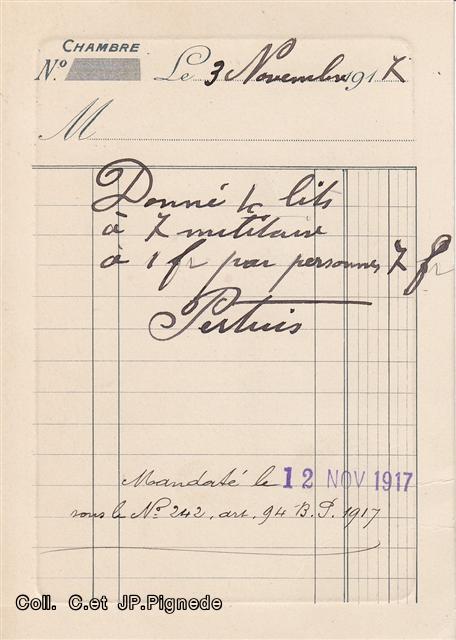 CHAMBRE
N.º Le 3 Novembre 1917
M
Donné 4 lits
à 7 militaire
à 1 fr par personnes 7 fr
Pertuis
Mandaté le 12 NOV 1917
sous le Nº 242, art. 94 B.P. 1917
Coll. C.et JP.Pignede